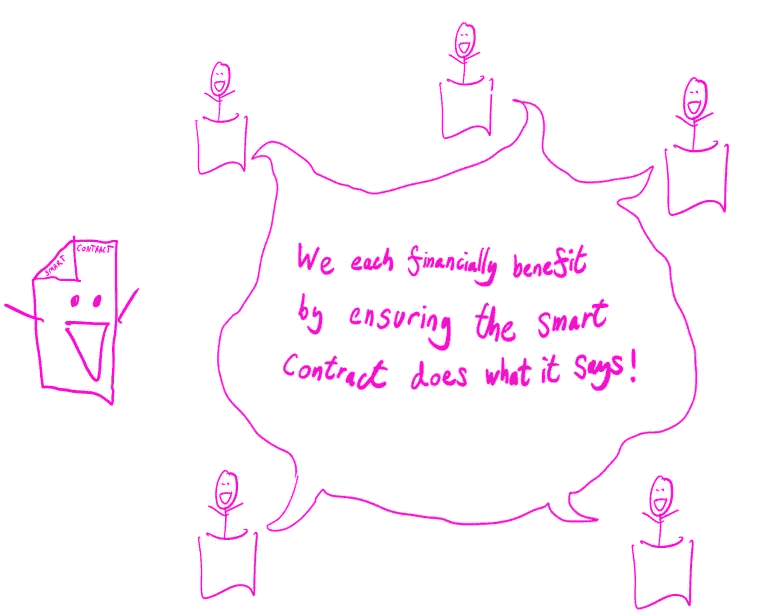 SMART CONTRACT
We each financially benefit
by ensuring the smart
Contract does what it says!